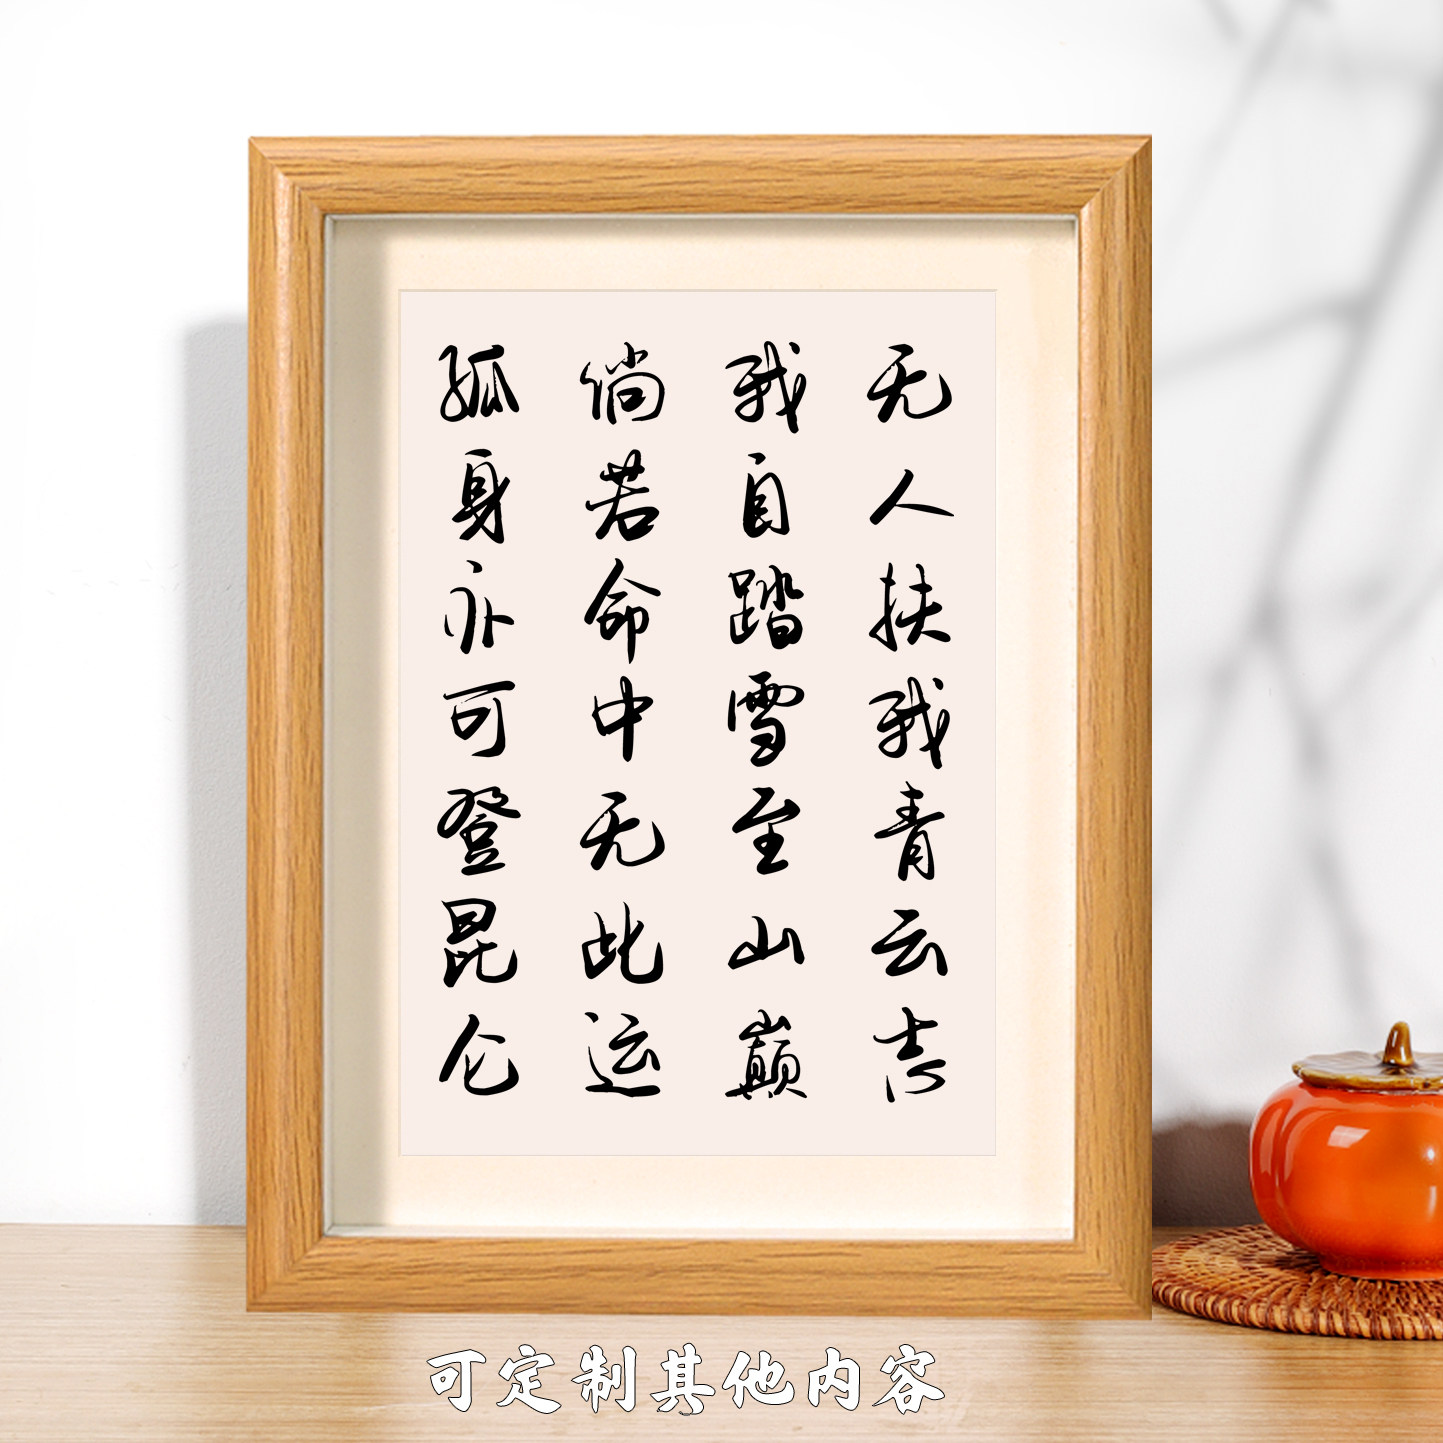 无人扶我青云志
我自踏雪至山巅
倘若命中无此运
孤身亦可登昆仑
可定制其他内容